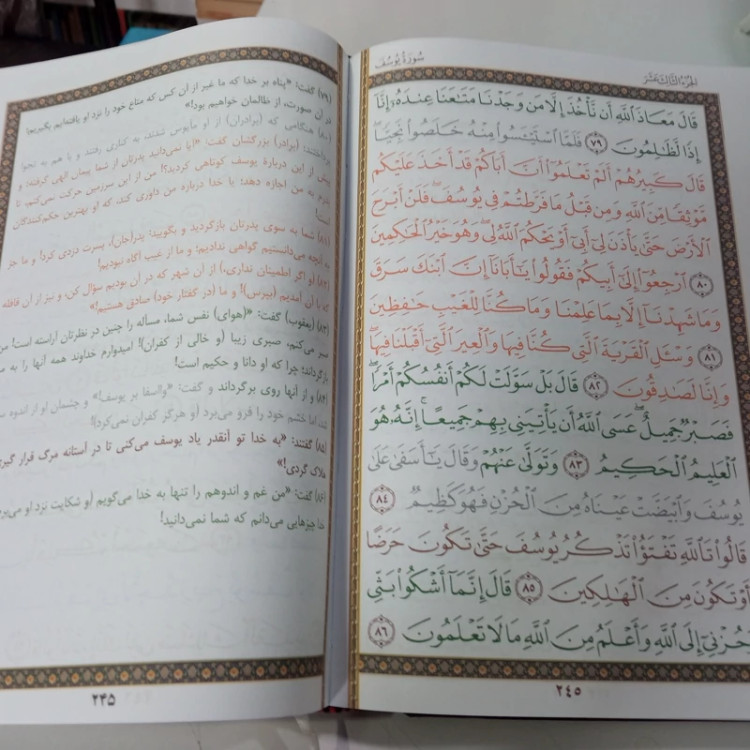 الجزء الثالث عشر
سورة يوسف
قَالَ مَعَاذَ ٱللَّهِ أَن نَّأۡخُذَ إِلَّا مَن وَجَدۡنَا مَتَٰعَنَا عِندَهُۥٓ إِنَّآ
إِذٗا لَّظَٰلِمُونَ ٧٩ فَلَمَّا ٱسۡتَيۡـَٔسُواْ مِنۡهُ خَلَصُواْ نَجِيّٗاۖ
قَالَ كَبِيرُهُمۡ أَلَمۡ تَعۡلَمُوٓاْ أَنَّ أَبَاكُمۡ قَدۡ أَخَذَ عَلَيۡكُم
مَّوۡثِقٗا مِّنَ ٱللَّهِ وَمِن قَبۡلُ مَا فَرَّطتُمۡ فِي يُوسُفَۖ فَلَنۡ أَبۡرَحَ
ٱلۡأَرۡضَ حَتَّىٰ يَأۡذَنَ لِيٓ أَبِيٓ أَوۡ يَحۡكُمَ ٱللَّهُ لِيۖ وَهُوَ خَيۡرُ ٱلۡحَٰكِمِينَ
٨٠ ٱرۡجِعُوٓاْ إِلَىٰٓ أَبِيكُمۡ فَقُولُواْ يَٰٓأَبَانَآ إِنَّ ٱبۡنَكَ سَرَقَ
وَمَا شَهِدۡنَآ إِلَّا بِمَا عَلِمۡنَا وَمَا كُنَّا لِلۡغَيۡبِ حَٰفِظِينَ
٨١ وَسۡـَٔلِ ٱلۡقَرۡيَةَ ٱلَّتِي كُنَّا فِيهَا وَٱلۡعِيرَ ٱلَّتِيٓ أَقۡبَلۡنَا فِيهَاۖ
وَإِنَّا لَصَٰدِقُونَ ٨٢ قَالَ بَلۡ سَوَّلَتۡ لَكُمۡ أَنفُسُكُمۡ أَمۡرٗاۖ
فَصَبۡرٞ جَمِيلٌۖ عَسَى ٱللَّهُ أَن يَأۡتِيَنِي بِهِمۡ جَمِيعًاۚ إِنَّهُۥ هُوَ
ٱلۡعَلِيمُ ٱلۡحَكِيمُ ٨٣ وَتَوَلَّىٰ عَنۡهُمۡ وَقَالَ يَٰٓأَسَفَىٰ عَلَىٰ
يُوسُفَ وَٱبۡيَضَّتۡ عَيۡنَاهُ مِنَ ٱلۡحُزۡنِ فَهُوَ كَظِيمٞ ٨٤
قَالُواْ تَٱللَّهِ تَفۡتَؤُاْ تَذۡكُرُ يُوسُفَ حَتَّىٰ تَكُونَ حَرَضًا
أَوۡ تَكُونَ مِنَ ٱلۡهَٰلِكِينَ ٨٥ قَالَ إِنَّمَآ أَشۡكُواْ بَثِّي
وَحُزۡنِيٓ إِلَى ٱللَّهِ وَأَعۡلَمُ مِنَ ٱللَّهِ مَا لَا تَعۡلَمُونَ ٨٦
٢٤٥
(۷۹) گفت: «پناه بر خدا که ما غیر از آن کس که متاع خود را نزد او یافته‌ایم بگیریم؛
در آن صورت، از ظالمان خواهیم بود!»
(۸۰) هنگامی که (برادران) از او مأیوس شدند، به کناری رفتند و با هم به نجوا
پرداختند؛ (برادر) بزرگشان گفت: «آیا نمی‌دانید پدرتان از شما پیمان الهی گرفته؛ و
پیش از این درباره یوسف کوتاهی کردید؟! من از این سرزمین حرکت نمی‌کنم، تا
پدرم به من اجازه دهد؛ یا خدا درباره من داوری کند، که او بهترین حکم‌کنندگان
است!
(۸۱) شما به سوی پدرتان بازگردید و بگویید: پدر(جان)، پسرت دزدی کرد! و ما جز
به آنچه می‌دانستیم گواهی ندادیم؛ و ما از غیب آگاه نبودیم!
(۸۲) (و اگر اطمینان نداری،) از آن شهر که در آن بودیم سؤال کن، و نیز از آن قافله
که با آن آمدیم (بپرس)! و ما (در گفتار خود) صادق هستیم!»
(۸۳) (یعقوب) گفت: «(هوای) نفس شما، مسأله را چنین در نظرتان آراسته است! من
صبر می‌کنم، صبری زیبا (و خالی از کفران)! امیدوارم خداوند همه آنها را به من
بازگرداند؛ چرا که او دانا و حکیم است!
(۸۴) و از آنها روی برگرداند و گفت: «وااسفا بر یوسف!» و چشمان او از اندوه سفید
شد، اما خشم خود را فرو می‌برد (و هرگز کفران نمی‌کرد)!
(۸۵) گفتند: «به خدا تو آنقدر یاد یوسف می‌کنی تا در آستانه مرگ قرار گیری،
هلاک گردی!»
(۸۶) گفت: «من غم و اندوهم را تنها به خدا می‌گویم (و شکایت نزد او می‌برم)!
خدا چیزهایی می‌دانم که شما نمی‌دانید!
۲۴۵